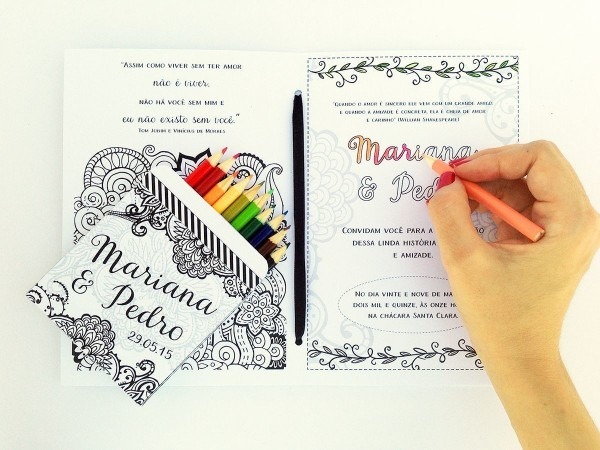 "Assim como viver sem ter amor
não é viver,
não há você sem mim e
eu não existo sem você."
Tom Jobim e Vinícius de Moraes
Mariana
& Pedro
29.05.15
"Quando o amor é sincero ele vem com um grande amigo
e quando a amizade é concreta, ela é cheia de amor
e carinho" (William Shakespeare)
Mariana
& Ped
Convidam você para a
dessa linda história
e amizade.
No dia vinte e nove de
dois mil e quinze, às onze
na chácara Santa Clara.